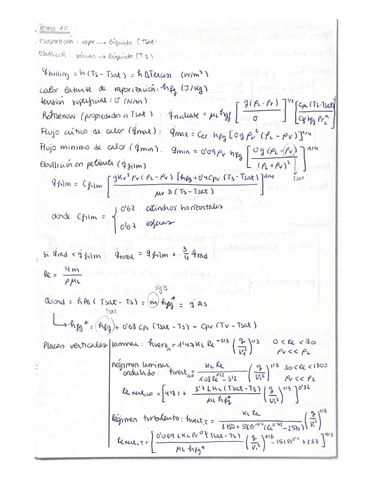 Tema 10:
evaporación: vapor → líquido (Tsat)
Ebullición: sólido → líquido (Ts)
q boiling = h(Ts - Tsat) = hΔTexces (W/m²)
calor latente de vaporización: hfg (J/kg)
tensión superficial: σ (N/m)
Rohsenow (propiedades a Tsat): q nucleate = μL hfg [g(ρL - ρv)/σ]^1/2 [CpL(Ts-Tsat)/Csf hfg PrL^n]³
Flujo crítico de calor (qmax): qmax = Ccr · hfg [σg ρv² (ρL - ρv)]^1/4
Flujo mínimo de calor (qmin): qmin = 0'09 ρv hfg [σg(ρL - ρv)/(ρL + ρv)²]^1/4
Tsat
Ebullición en película (qfilm)
qfilm = Cfilm [gKv³ ρv (ρL - ρv) [hfg + 0'4Cpv (Ts - Tsat)]/μv D (Ts - Tsat)]^1/4 (Ts - Tsat)
donde Cfilm = { 0'62 cilindros horizontales
0'67 esferas
si qrad < qfilm: qtotal = qfilm + 3/4 qrad
Re = 4m/PμL
Qcond = hAs (Tsat - Ts) = m hfg* = qAs
kg/s
Tsat
→ hfg* = hfg + 0'68 CpL (Tsat - Ts) + Cpv (Tv - Tsat)
Placas verticales laminar: hvert = 1'47 KL Re^-1/3 (g/VL²)^1/3 0 < Re < 30
ρv << ρL
Régimen laminar
ondulado: hvert = KL Re/1'08 Re^1'22 - 5'2 (g/VL²)^1/3 30 < Re < 1800
ρv << ρL
Re vert = [4'81 + 3'7 L KL (Tsat - Ts)/μL hfg* (g/VL²)^1/3]^0'82
Régimen turbulento: hvert,T = KL Re/8750 + 58 Pr^-0'5 (Re^0'75 - 253) (g/VL²)^1/3
Re vert,T = [0'069 L KL Pr^0'5 (Tsat - Ts)/μL hfg* (g/VL²)^1/3 - 151 Pr^0'5 + 253]^4/3